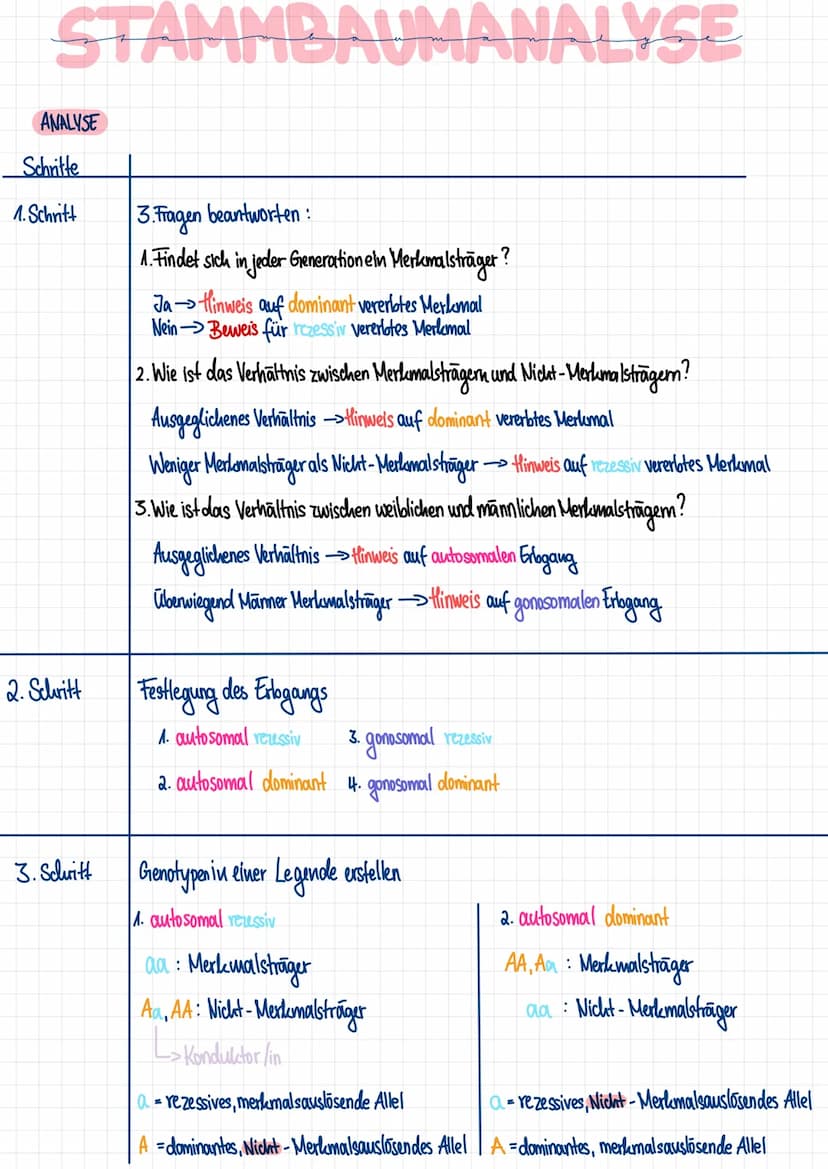 STAMMBAUMANALYSE
stammbaumanalyse
ANALYSE
Schritte
1. Schritt
3 Fragen beantworten:
1. Findet sich in jeder Generation ein Merkmalsträger?
Ja → Hinweis auf dominant vererbtes Merkmal
Nein → Beweis für rezessiv vererbtes Merkmal
2. Wie ist das Verhältnis zwischen Merkmalsträgern und Nicht-Merkmalsträgern?
Ausgeglichenes Verhältnis → Hinweis auf dominant vererbtes Merkmal
Weniger Merkmalsträger als Nicht-Merkmalsträger → Hinweis auf rezessiv vererbtes Merkmal
3. Wie ist das Verhältnis zwischen weiblichen und männlichen Merkmalsträgern?
Ausgeglichenes Verhältnis → Hinweis auf autosomalen Erbgang
Überwiegend Männer Merkmalsträger → Hinweis auf gonosomalen Erbgang
2. Schritt
Festlegung des Erbgangs
1. autosomal rezessiv
3. gonosomal rezessiv
2. autosomal dominant
4. gonosomal dominant
3. Schritt
Genotypen in einer Legende erstellen
1. autosomal rezessiv
aa : Merkmalsträger
Aa, AA : Nicht-Merkmalsträger
↳ Konduktor/in
a = rezessives, merkmalsauslösende Allel
A = dominantes, Nicht-Merkmalsauslösendes Allel
2. autosomal dominant
AA, Aa : Merkmalsträger
aa : Nicht-Merkmalsträger
a = rezessives, Nicht-Merkmalsauslösendes Allel
A = dominantes, merkmalsauslösende Allel